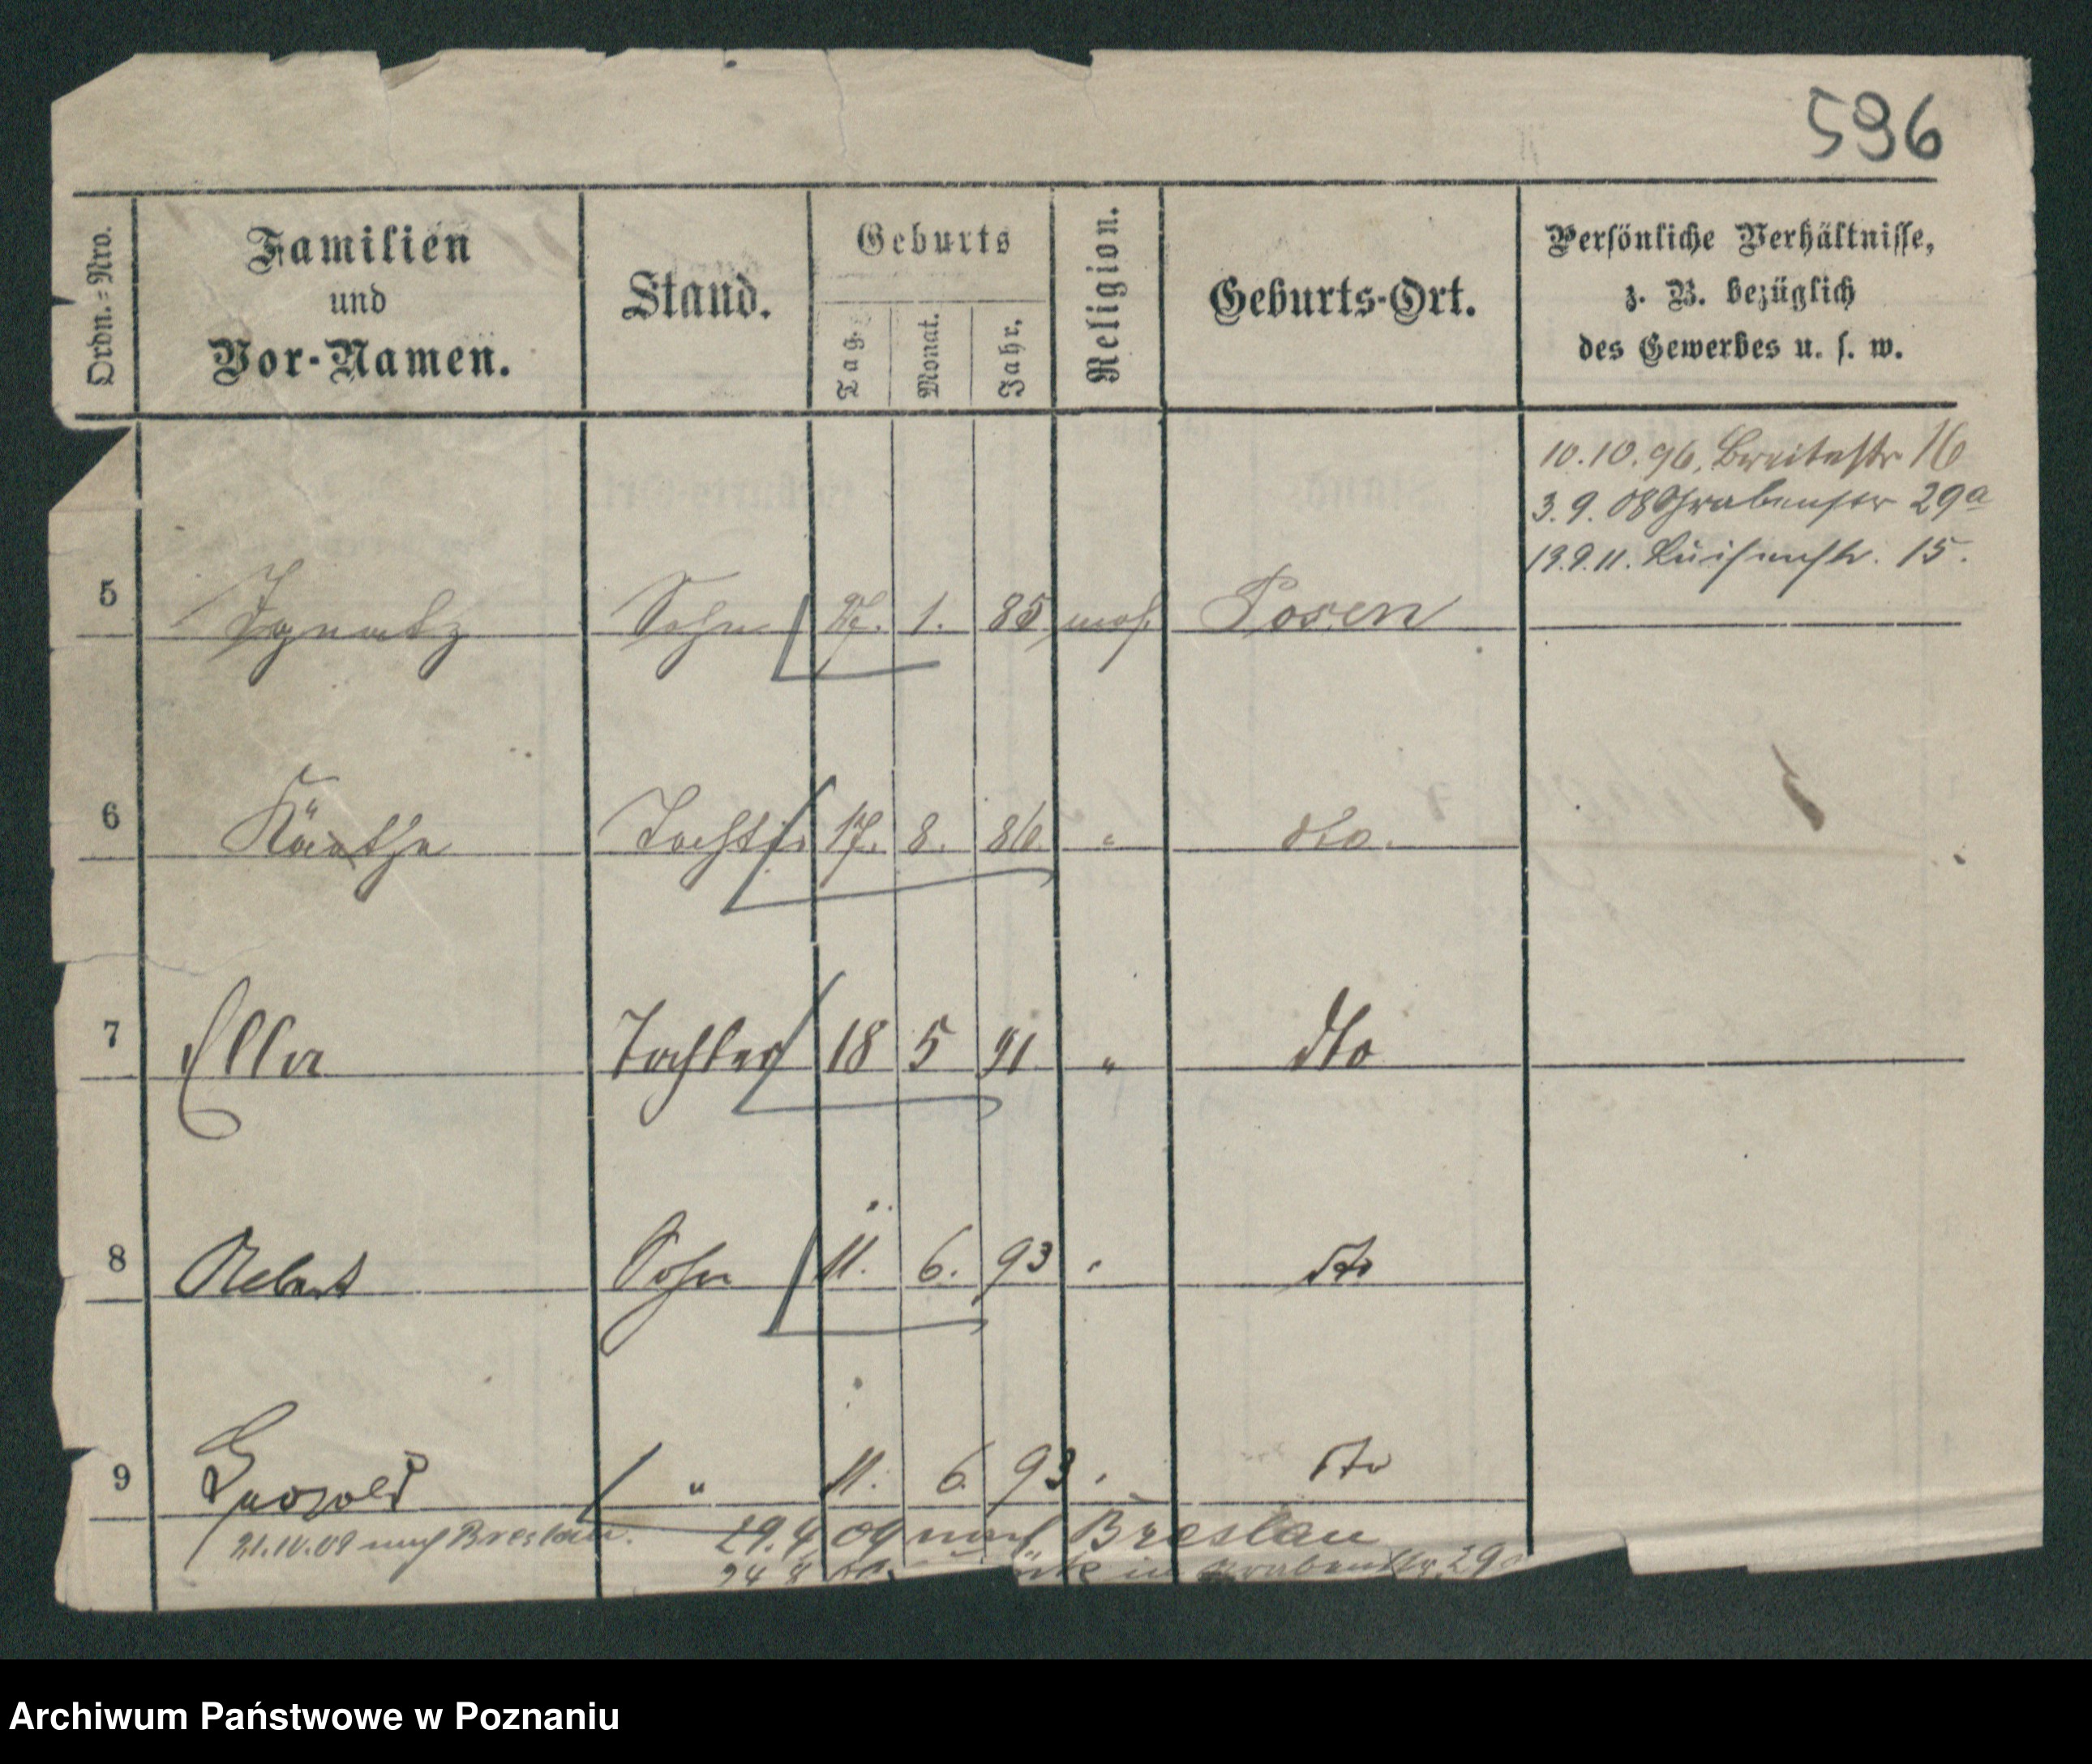 596
Ordn.=Nro.
Familien
und
Vor-Namen.
Stand.
Geburts
Tag.
Monat.
Jahr.
Religion.
Geburts-Ort.
Persönliche Verhältnisse,
z. B. bezüglich
des Gewerbes u. s. w.
10.10.96, Breitestr 16
3.9.08 Grabenstr 29a
19.9.11. Luisenstr. 15.
5 Ignatz Sohn 27. 1. 85 mos. Posen
6 Käthe Tochter 17. 8. 86 " dto.
7 Ella Tochter 18 5 91 " dto
8 Sohn 11. 6. 93 " dto
9 Leopold " 11. 6. 93 " dto
21.10.09 nach Breslau. 29.4.09 nach Breslau
24 8 in Grabenstr. 29a
Archiwum Państwowe w Poznaniu